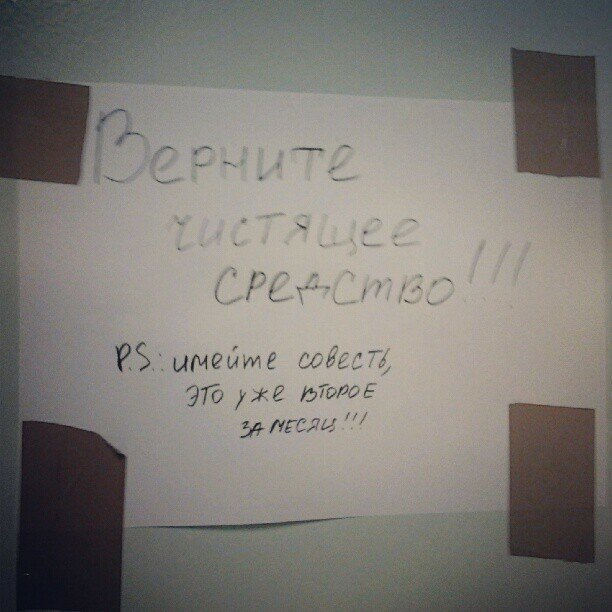 Верните
чистящее
средство!!!
P.S.: имейте совесть,
это уже второе
за месяц!!!